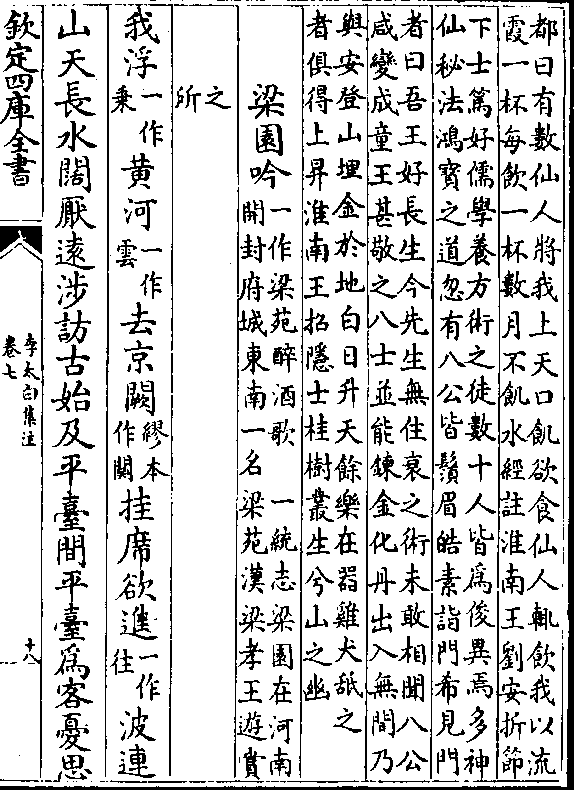 都曰有數仙人將我上天口飢欲食仙人輒飲我以流
霞一杯每飲一杯數月不飢水經註淮南王劉安折節
下士篤好儒學養方術之徒數十人皆為俊異焉多神
仙秘法鴻寶之道忽有八公皆鬚眉皓素詣門希見門
者曰吾王好長生今先生無住衰之術未敢相聞八公
咸變成童王甚敬之八士並能鍊金化丹出入無間乃
與安登山埋金於地白日升天餘樂在器雞犬舐之
者俱得上昇淮南王招隱士桂樹叢生兮山之幽
梁園吟一作梁苑醉酒歌 一統志梁園在河南
開封府城東南一名梁苑漢梁孝王遊賞
之
所
我浮一作乘黃河一作雲去京闕繆本作關挂席欲進一作往波連
山天長水闊厭遠涉訪古始及平臺間平臺為客憂思
欽定四庫全書
李太白集注
卷七
十八